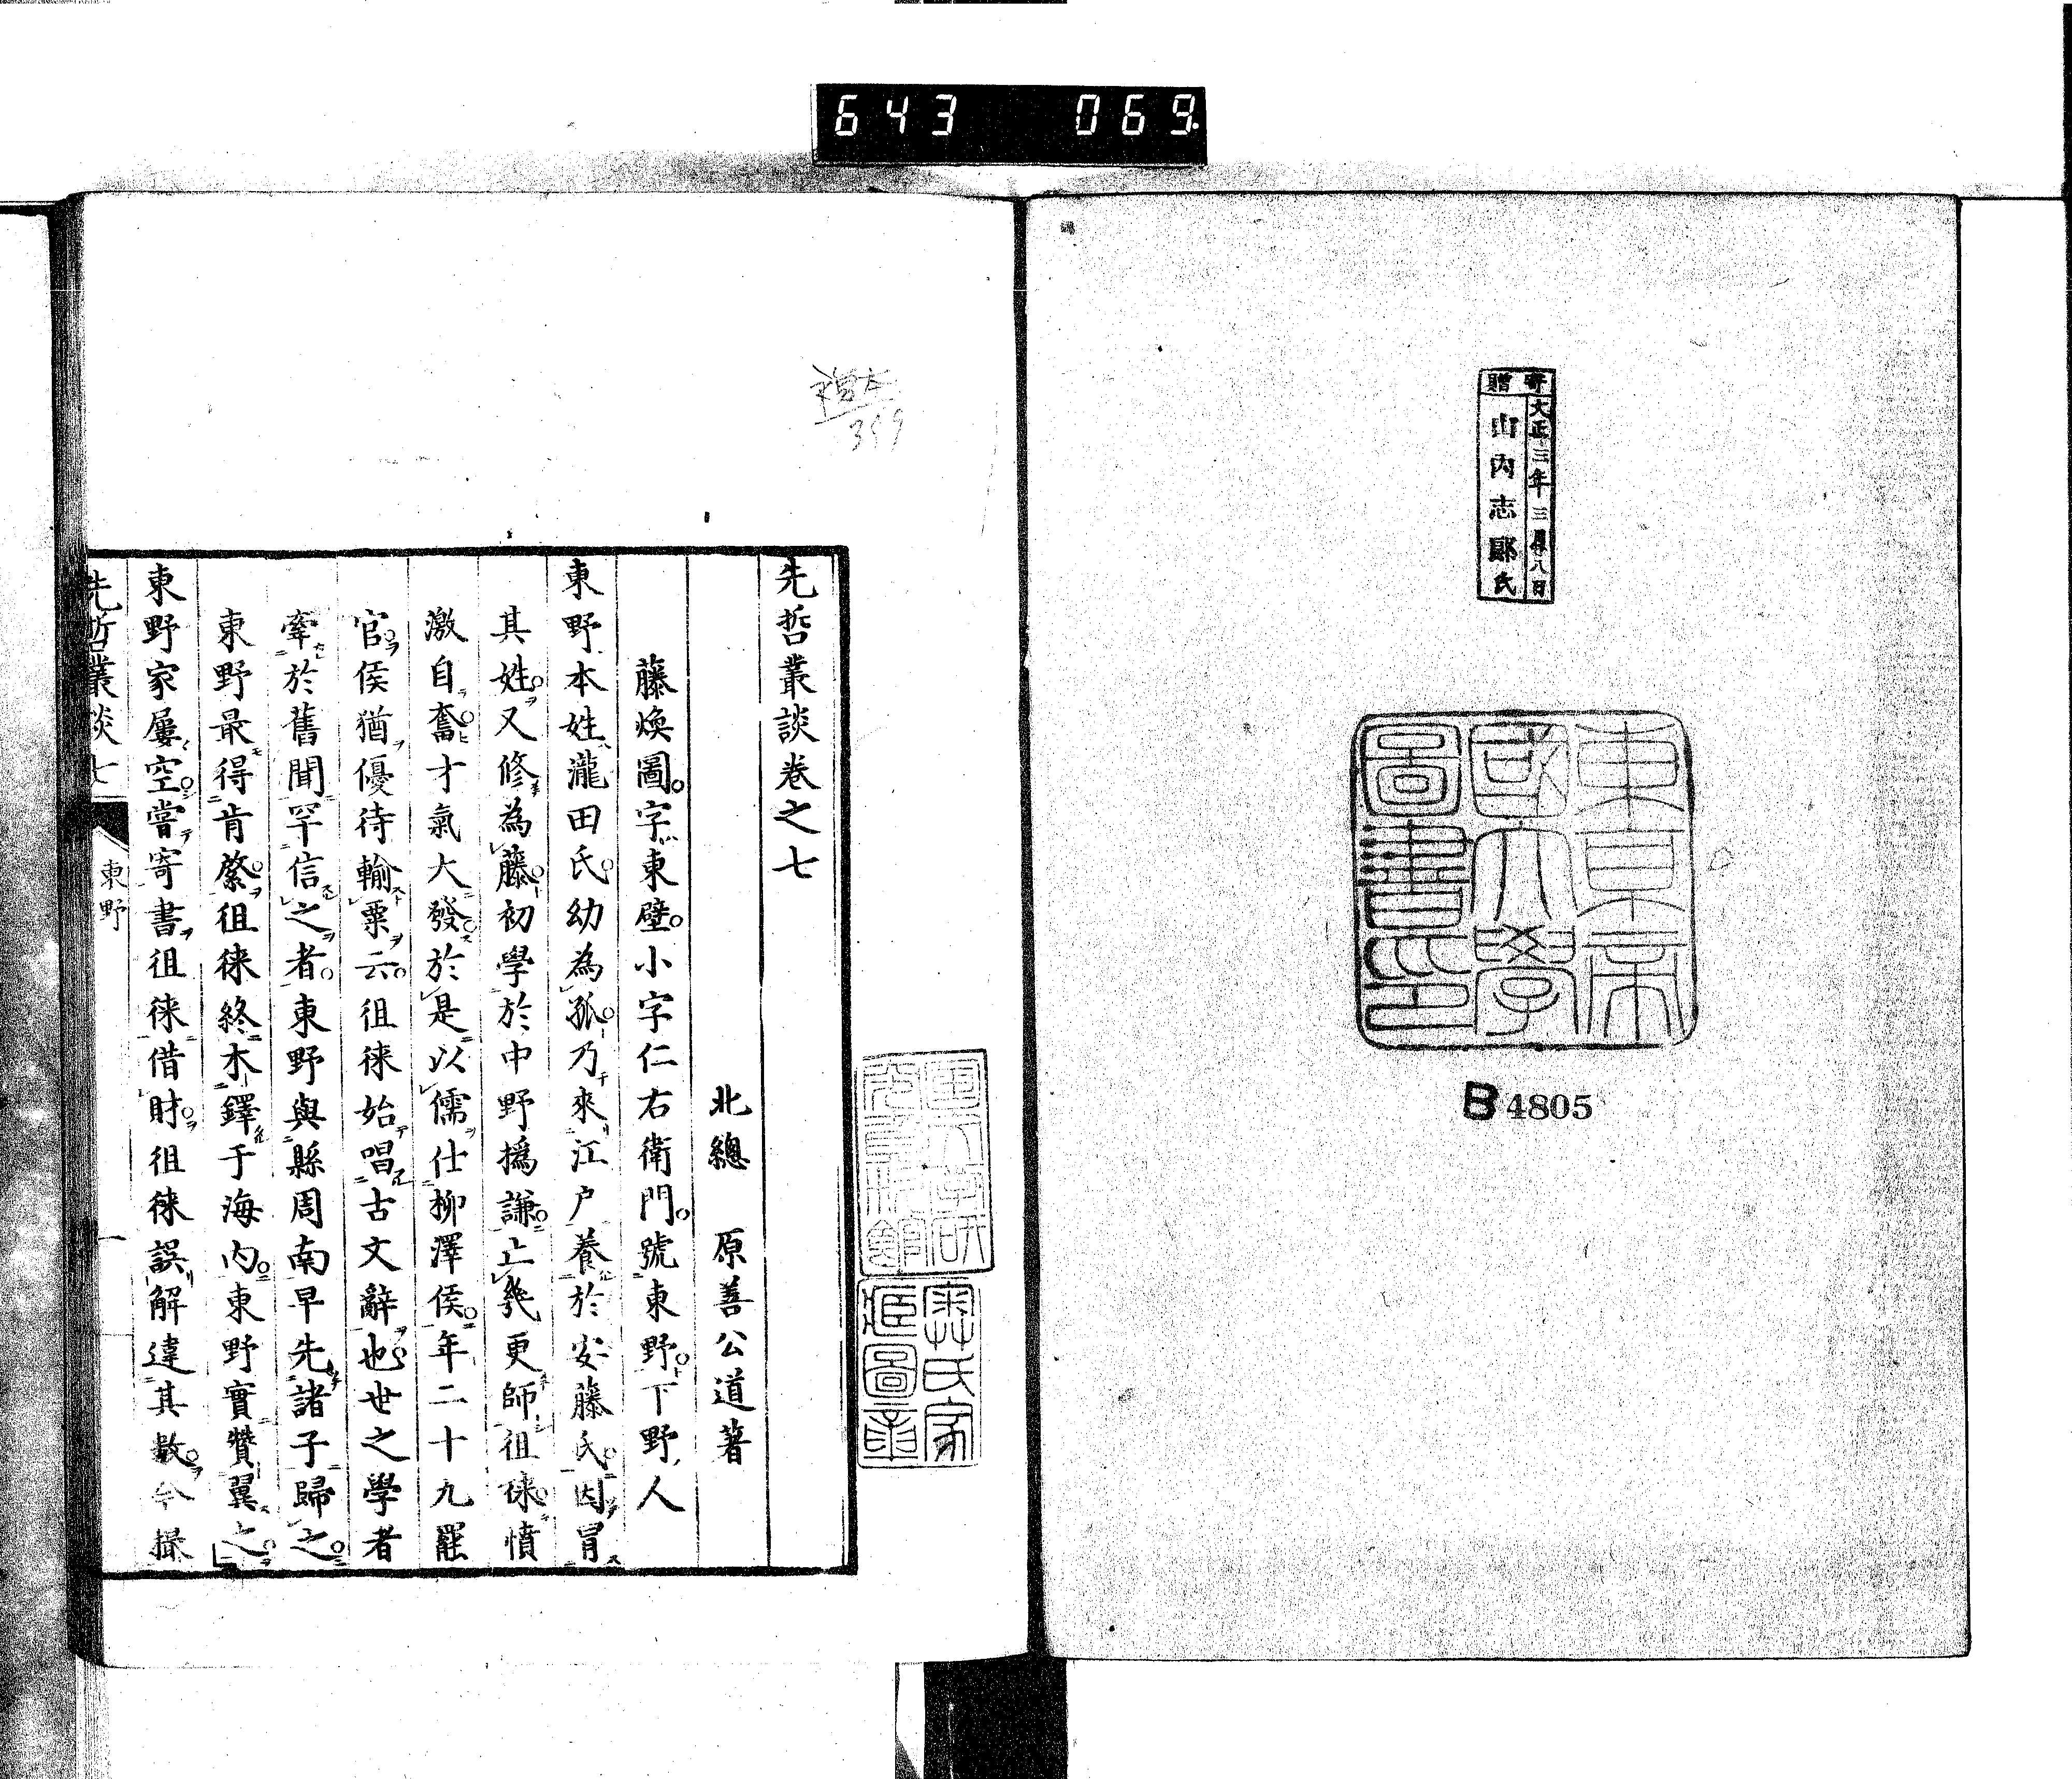 643 069.
寄贈
大正三年三月八日
山内志郎氏
東京帝國大學圖書印
B 4805
複本
359
先哲叢談卷之七
北總 原善公道著
藤煥圖字東壁小字仁右衛門號東野下野人
東野本姓瀧田氏幼為孤乃來江戶養於安藤氏因冒
其姓又修為藤初學於中野撝謙亡幾更師徂徠憤
激自奮才氣大發於是以儒仕柳澤侯年二十九罷
官侯猶優待輸粟云徂徠始唱古文辭也世之學者
牽於舊聞罕信之者東野與縣周南早先諸子歸之
東野最得肯綮徂徠終木鐸于海內東野實贊翼之
東野家屢空嘗寄書徂徠借財徂徠誤解違其數今撮
先哲叢談七
東野
一